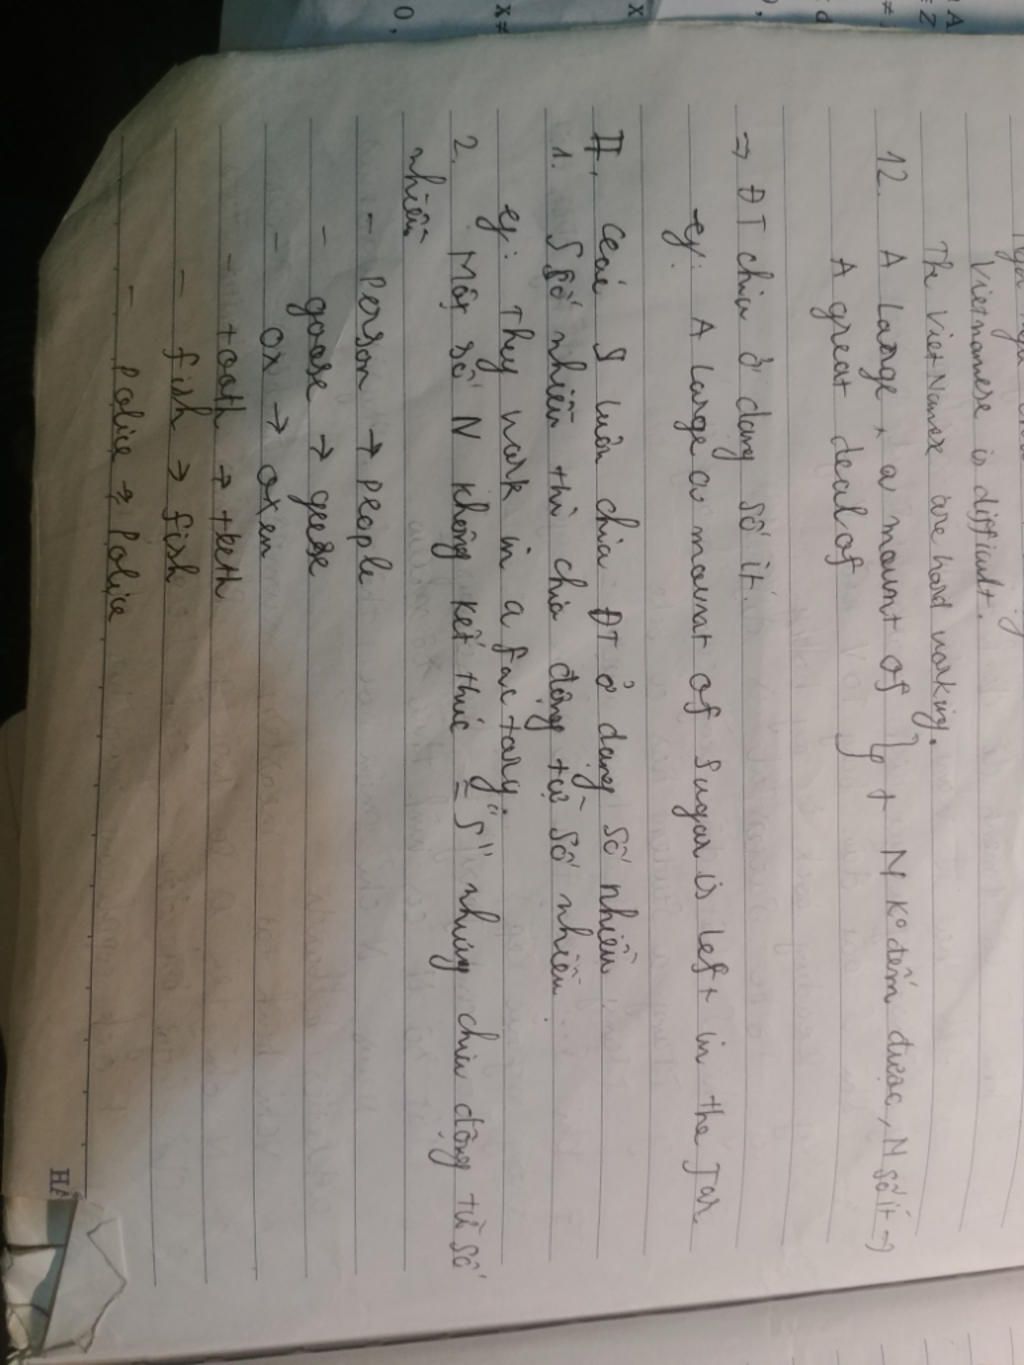 Vietnamese is difficult.
The VietNamese are hard working.
12. A large a mount of } + N Kº đếm được, N số ít →
A great deal of
→ ĐT chia ở dạng số ít.
eg: A large a mount of Sugar is left in the Jar
II. Các S luôn chia ĐT ở dạng số nhiều
1. S số nhiều thì chia động từ số nhiều.
eg: They work in a factory.
2. Một số N không kết thúc = "S" nhưng chia động từ số
nhiều
- Person → People
- goose → geese
- ox → oxen
- tooth → teeth
- fish → fish
- Police → Police
HẢ